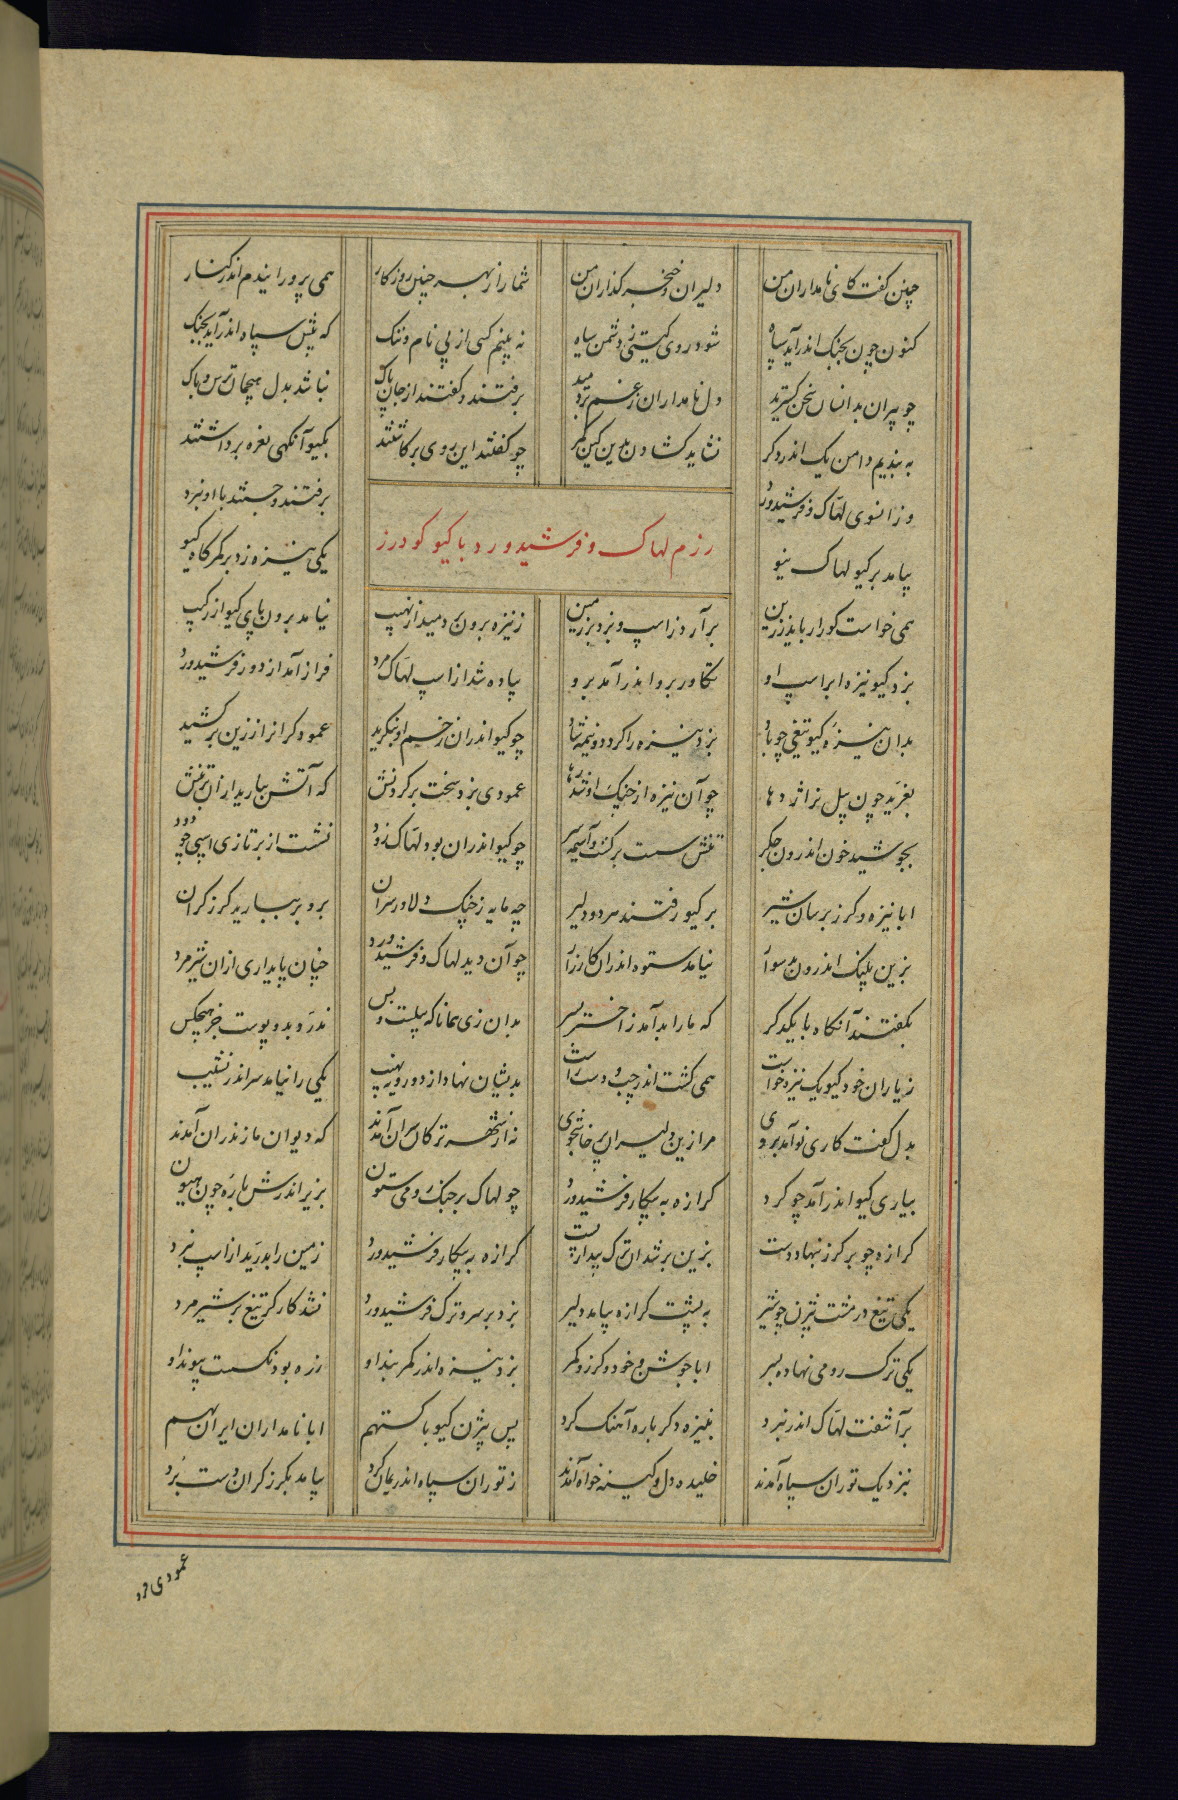 چنین گفت کای نامداران من دلیران و خنجر گذاران من شما را ز بهر چنین روزگار همی پرورانیدم اندر کنار
کنون چون بجنگ اندر آید سپاه شود روی گیتی ز دشمن سیاه نه بینم کسی از پی نام و ننک که پیش سپاه اندر آید بجنک
چو پیران بدانسان سخن گسترید دل نامداران ز غم بردمید برفتند و گفتند از جان پاک نباشد بدل هیچمان ترس و باک
به بندیم دامن یک اندر دگر نشاید گشادن بدین کین کمر چو گفتند این روی برگاشتند بگیو آنگهی نعره برداشتند
وزانسوی لهّاک و فرشیدورد برفتند و جستند با او نبرد
رزم لهاک و فرشیدورد با گیو گودرز
بیامد بر گیو لهاک نیو یکی نیزه زد بر کمرگاه گیو
همی خواست کورا رباید ز زین برآرد ز اسپ و زند بر زمین ز نیزه برون بردمید از نهیب نیامد برون پای گیو از رکیب
بزد گیو نیزه ابر اسپ او تکاور برو اندر آمد برو پیاده شد از اسپ لهاک مرد فراز آمد از دور فرشیدورد
بدان نیزهٔ گیو تیغی چو باد بزد نیزه را کرد دو نیمه شاد چو گیو اندران زخم او بنگرید عمود گران از زین برکشید
بغرید چون پیل نر اژدها چو آن نیزه از چنگ او شد رها عمودی بزد سخت بر گردنش که آتش ببارید ازان بر تنش
بجوشید خون اندرون جگر تنش سست برگشت و آسیمه سر چو گیو اندران بود لهّاک زود نشست از بر تازی اسپی چو دود
ابا نیزه و گرز برسان شیر بر گیو رفتند هر دو دلیر چه مایه ز چنگ دلاور سران برو بر ببارید گرز گران
بزین پلنگ اندرون بد سوار نیامد ستوه اندران کارزار چو آن دید لهاک و فرشیدورد چنان پایداری ازان شیر مرد
بگفتند آنگاه با یکدگر که ما را بد آمد ز اختر بسر بدان زی همانا که پیلست و بس ندرد بدو پوست جز هیچکس
ز یاران خود گیو یک نیزه خواست همی گشت اندر چپ و دست راست بدیشان نهاد از دو رویه نهیب یکی را نیامد سر اندر نشیب
بدل گفت کاری نو آمد بروی مرا زین دلیران پرخاشجوی نه از شهر ترکان سران آمدند که دیوان مازندران آمدند
بیاری گیو اندر آمد چو گرد گرازه به پیکار فرشیدورد چو لهاک بر جنگ رومی ستون بزیر اندرش باره چون هیون
گرازه چو بر گرز بنهاد دست بزین بر شد آن ترک بیدار پست گرازه به پیکار فرشیدورد زمین را بدرید از اسپ نبرد
یکی تیغ در مشت بیژن چو شیر به پشت گرازه بیامد دلیر بزد بر سر و ترک فرشیدورد نشد کارگر تیغ بر شیر مرد
یکی ترک رومی نهاده بسر ابا جوشن و خود و گرز و کمر بزد نیزه اندر کمربند او زره بود نگسست پیوند او
برآشفت لهّاک اندر نبرد بنیزه دگر باره آهنک کرد پس بیژن گیو با گستهم ابا نامداران ایران بهم
بنزدیک توران سپاه آمدند خلیده دل و کینه خواه آمدند ز توران سپاه اندریمان گرد بیامد بگرز گران دست برد
عمودی زد